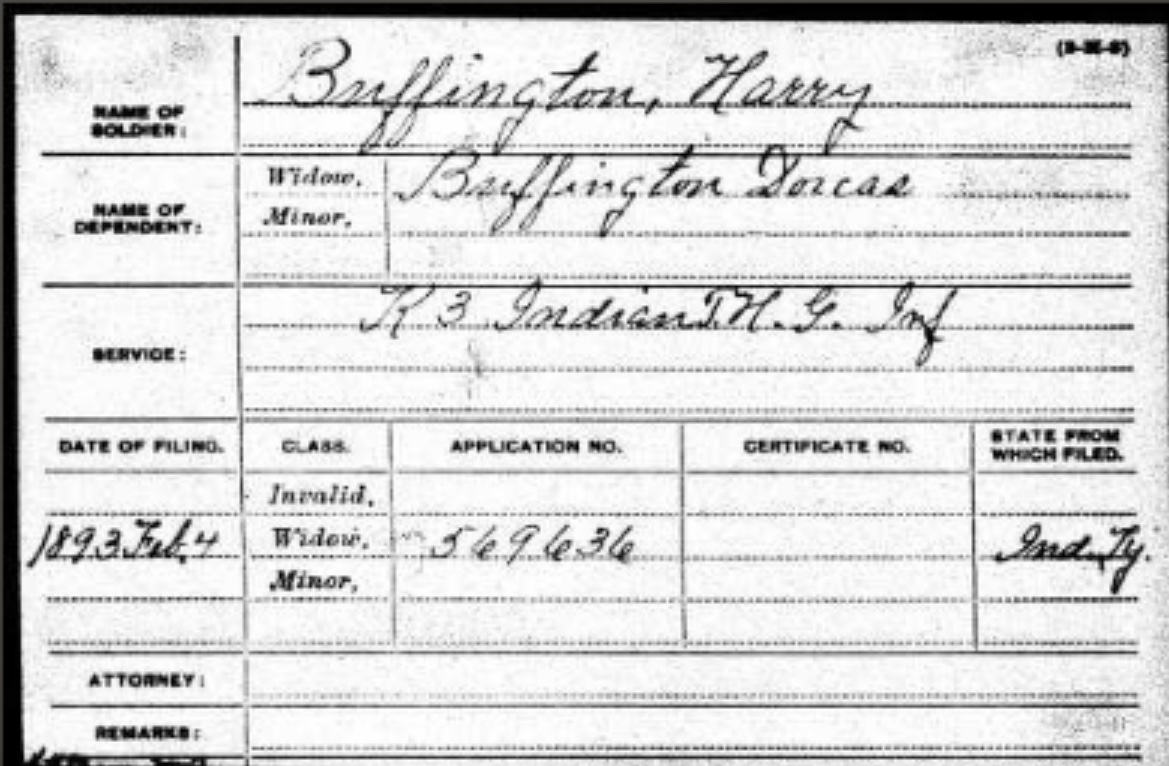 (3-    )
Buffington, Harry
NAME OF
SOLDIER:
Widow, Buffington Dorcas
NAME OF
DEPENDENT:
Minor,
K 3 Indian H. G. Inf
SERVICE:
DATE OF FILING. CLASS. APPLICATION NO. CERTIFICATE NO. STATE FROM
WHICH FILED.
Invalid,
1893 Feb. 4 Widow, 569636 Ind. Ty.
Minor,
ATTORNEY:
REMARKS: